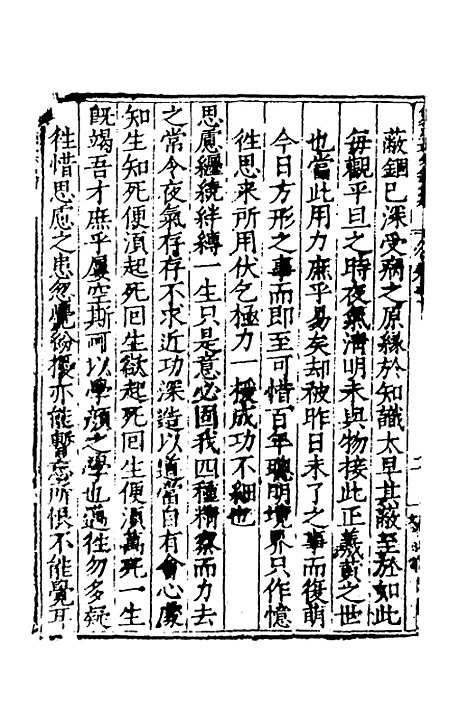 蔽錮已深受病之原緣於知識太早其蔽至於如此
每觀平旦之時夜氣清明未與物接此正羲黃之世
也當此用力庶乎易矣却被昨日未了之事而復萌
今日方形之事而即至可惜百年聰明境界只作憶
徃思来所用伏乞極力一援成功不細也
思慮纏繞絆縛一生只是意必固我四種精察而力去
之常令夜氣存存不求近功深造以道當自有會心處
知生知死便湏起死回生欲起死回生便湏萬死一生
旣竭吾才庶乎屢空斯可以學顔之學也邁徃勿多疑
徃惜思慮之患忽覺紛擾亦能暫忘所恨不能覺耳